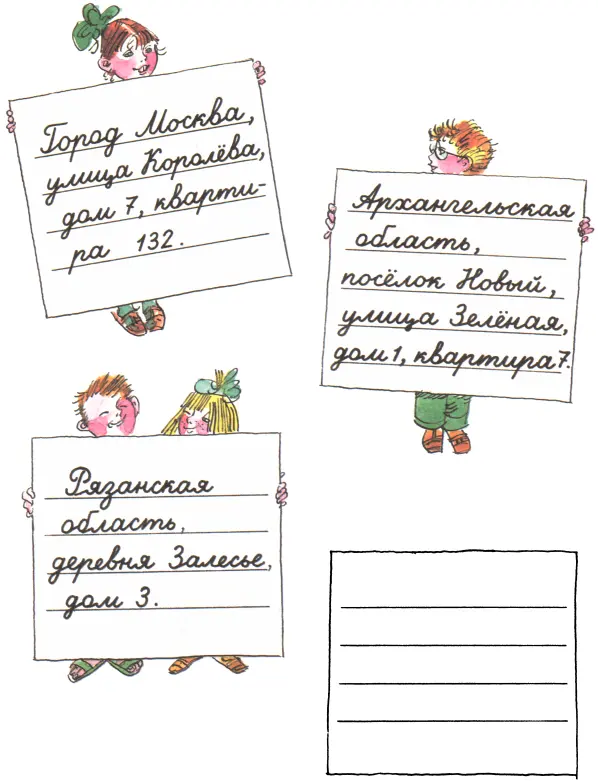 Город Москва,
улица Королёва,
дом 7, кварти-
ра 132.
Архангельская
область,
посёлок Новый,
улица Зелёная,
дом 1, квартира 7.
Рязанская
область,
деревня Залесье,
дом 3.